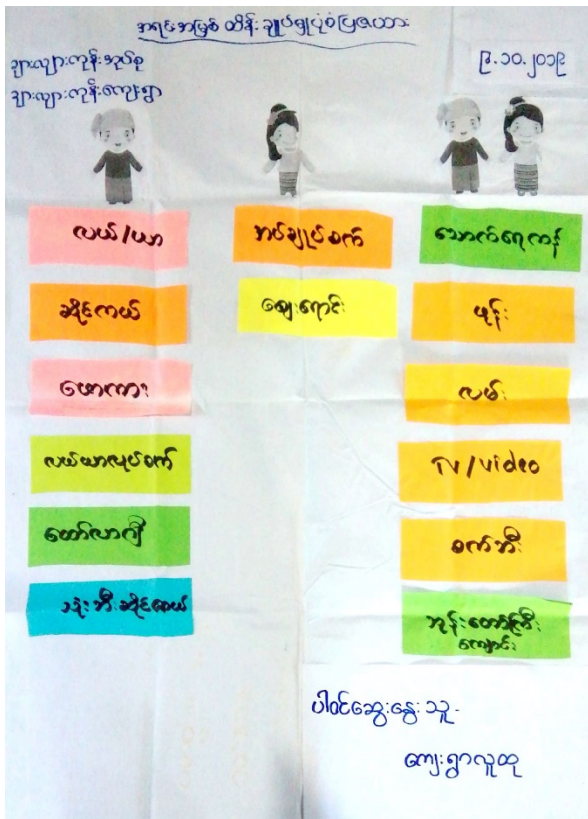 အရင်းအမြစ် ထိန်းချုပ်မှုပုံစံပြဇယား
၉.၁၀.၂၀၁၉
ကျေးရွာ
လယ်/ယာ
ဆိုင်ကယ်
ဖောကား
လယ်ယာလုပ်စက်
ထော်လာဂျီ
သုံးဘီးဆိုင်ကယ်
အပ်ချုပ်စက်
ဈေးရောင်း
သောက်ရေကန်
ဖုန်း
လမ်း
TV/Video
စက်ဘီး
ဘုန်းတော်ကြီး
ကျောင်း
ပါဝင်ဆွေးနွေးသူ-
ကျေးရွာလူထု